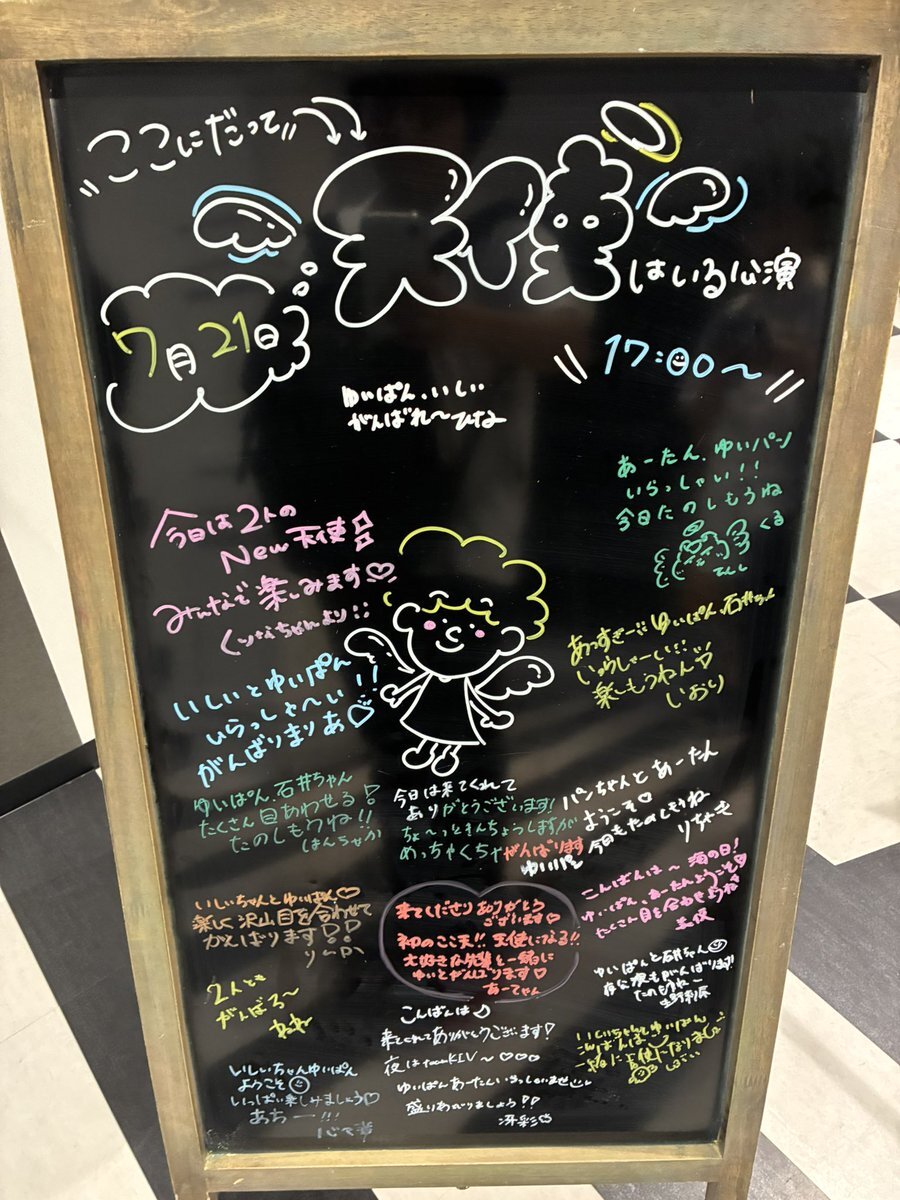 ここにだって
天使はいる公演
7月21日
17:00〜
ゆいぱん、いしい
がんばれ〜ひな
あーたん、ゆいパン
いらっしゃい!!
今日たのしもうね
くる
てんし
今日は2人の
New天使
みんなで楽しみます♡
あっすぎー ゆいぱん、石井ちゃん
楽しもうねん
しおり
いしいとゆいぱん
いらっしゃ〜い!!
がんばりまりあ♡
ゆいぱん、石井ちゃん
たくさん目あわせる!
たのしもうね!!
はんちゃか
今日は来てくれて
ありがとうございます!
ちょ〜っときんちょうしますが
めっちゃくちゃがんばります
ゆいパン
パンちゃんとあーたん
ようこそ♡
今日もたのしもうね
りちゃも
いしいちゃんとゆいぱん♡
楽しく沢山目を合わせて
がんばります
来てくださりありがとう
ございます♡
初のここ天!! 天使になる!!
大好きな先輩と一緒に
ゆいとがんばります♡
あーちゃん
こんばんは〜 海の日!
ゆいぱん、あーたんようこそ♡
たくさん目を合わせようね
美咲
ゆいぱんと石井ちゃん
夜公演もがんばります!!
たのもうね〜
2人とも
がんばろ〜
こんばんは♪
来てくれてありがとうございます!
夜はteamKIV〜♡♡♡
ゆいぱんあーたんいらっしゃいませ
盛りあがりましょう!!
冴彩♡
いしいちゃんとゆいぱん
一緒に天使になりましょ
いしいちゃんゆいぱん
ようこそ
いっぱい楽しみましょう♡
あちー!!!